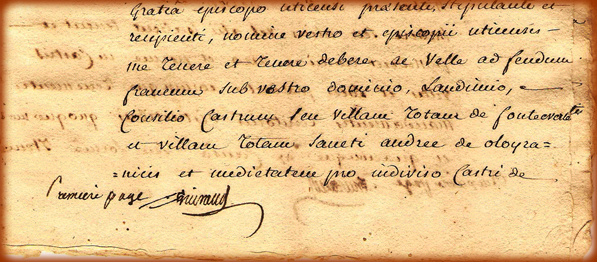 Gratia episcopo uticensi præsente, stipulante et
recipienti, nomine vestro et episcopii uticensis-
me Tenere et Tenere debere se Velle ad feudum
francum sub vostro dominio Laudimio,
Consilio Castrum seu villam Totam de fonte
et villam Totam Sancti andree de oloyra-
=nicis et medietatem pro indiviso Castri de
Premiere page